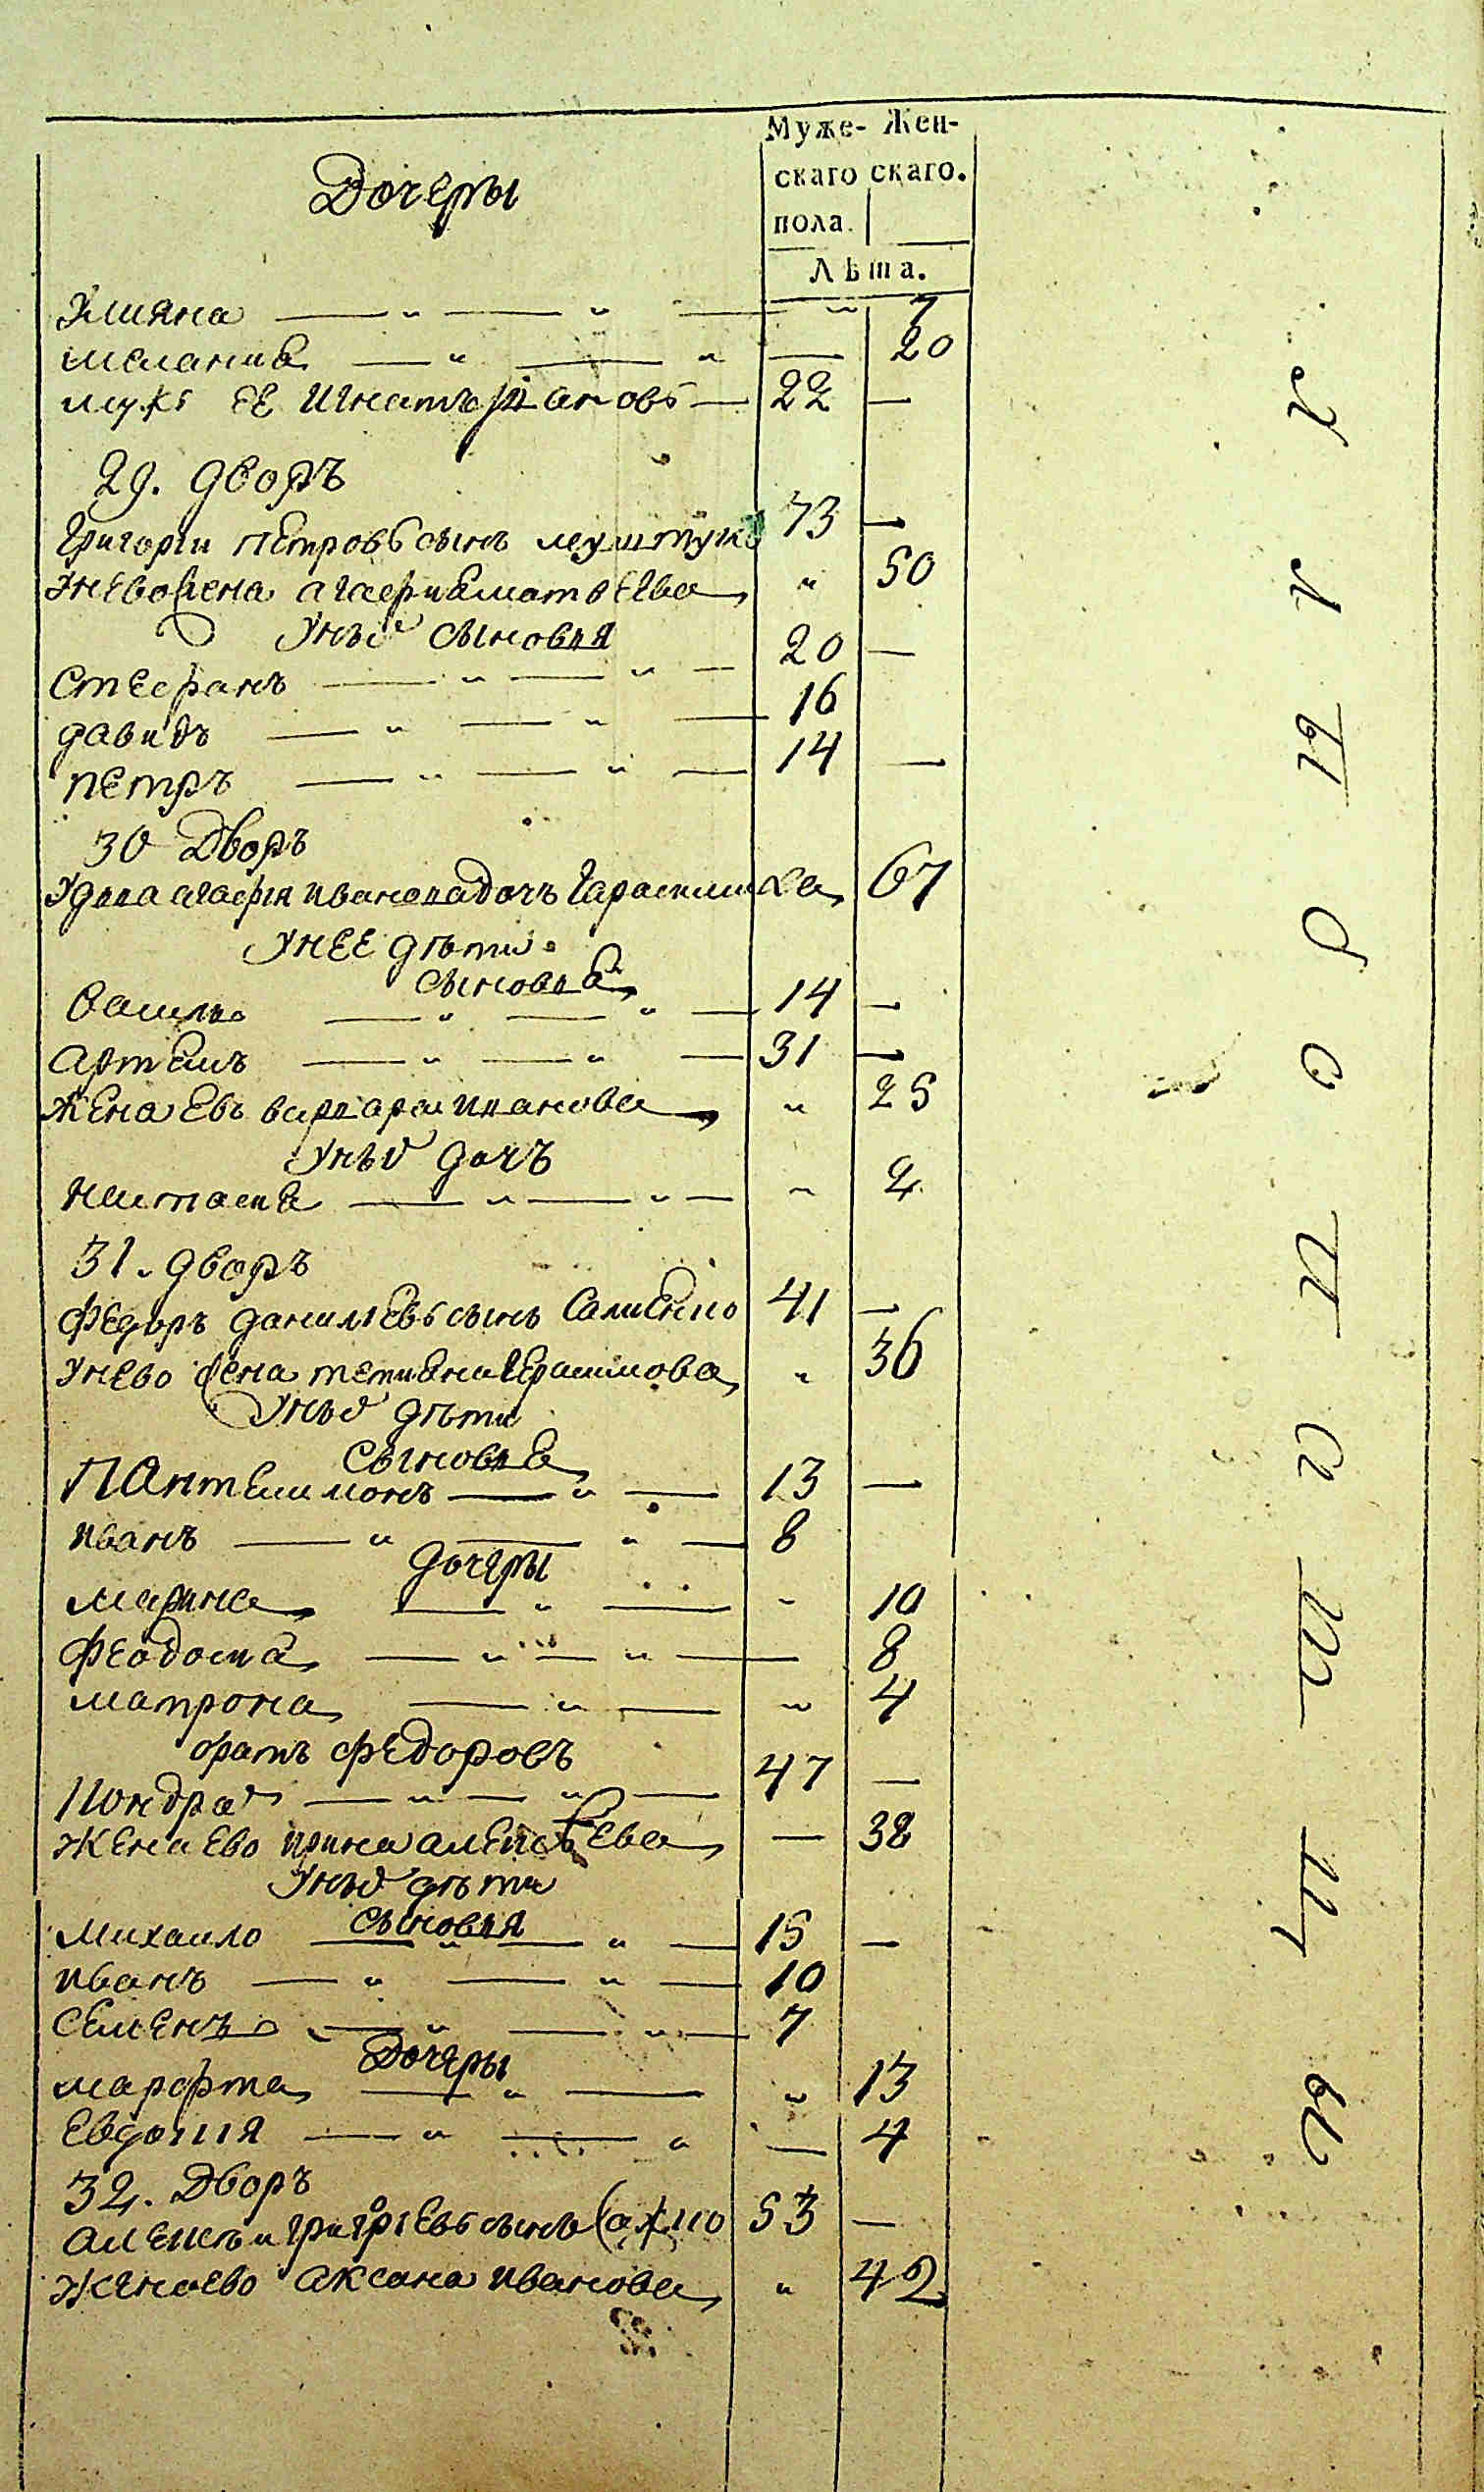 Муже- Жен-
скаго скаго.
пола.
Лѣта.
Дочеры
Улияна 7
мелания 20
мужъ ее Игнатъ Ивановъ 22
29. дворъ
Григорги Петровъ сынъ муштукъ 73
унево жена агафия матвеева 50
Унъхъ сыновья
стефанъ 20
давидъ 16
петръ 14
30 Дворъ
Удова агафия иванова дочь 67
Унее дѣти
сыновья
Василь 14
артемъ 31
жена евъ варвара иванова 25
Унъхъ дочъ
настасия 2
31. дворъ
Федоръ данилıевъ сынъ 41
унево жена татияна Герасимова 36
Унъхъ дѣти
сыновья
Пантелимонъ 13
иванъ 8
дочеры
марина 10
феодосия 8
матрона 4
братъ Федоровъ
Кондратъ 47
жена ево ирина алексѣева 38
Унъхъ дѣти
сыновья
михаило 15
иванъ 10
семенъ 7
Дочеры
марфта 13
Евдокия 4
32. Дворъ
алексѣи григорıевъ сынъ 53
жена ево аксана иванова 42